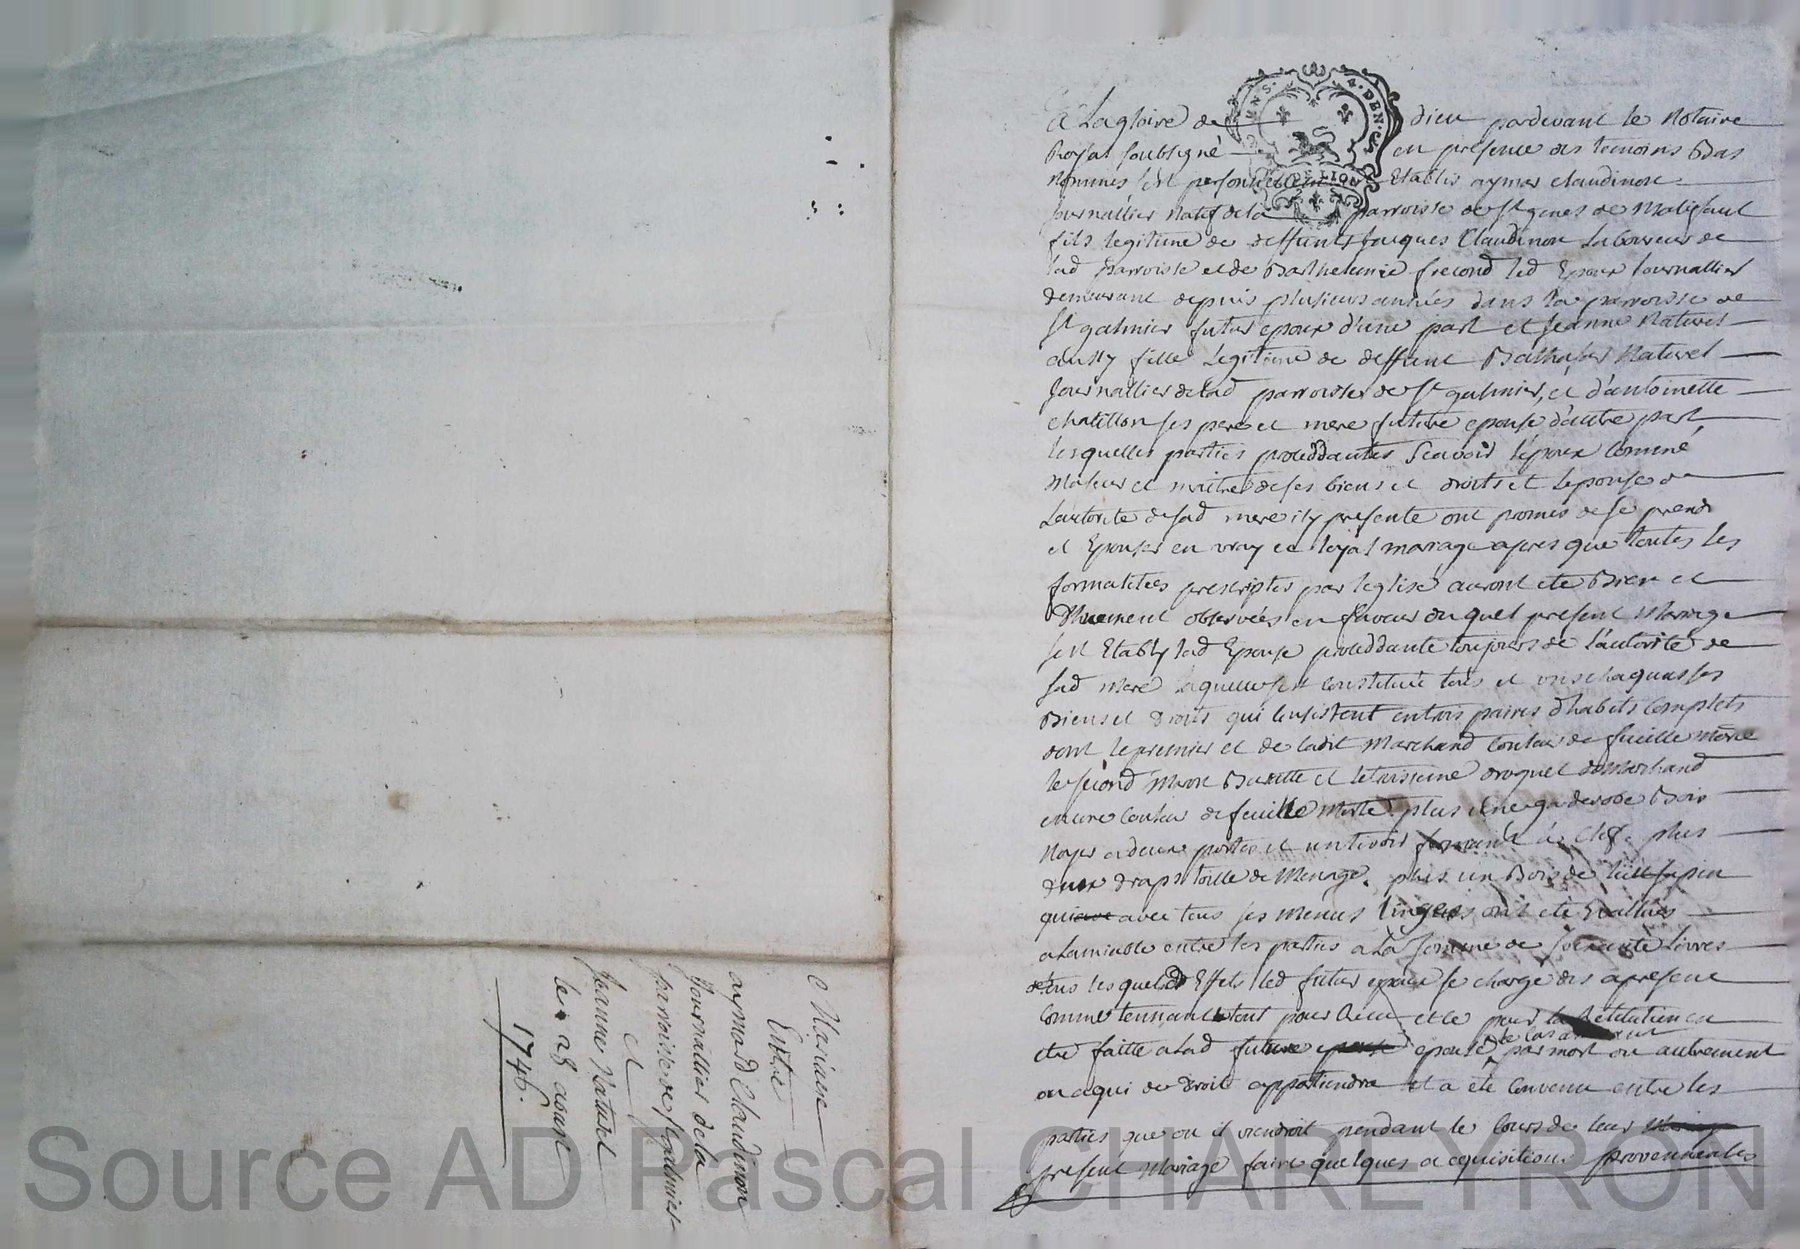 A La gloire de dieu pardevant le Notaire
Royal soubsigné en presence des temoins Bas
Nommés sont personnellement Etablis aymar claudinon
Journallier natif de la parroisse de St genes de Malifaut
fils legitime de deffunt Jacques Claudinon Laboureur de
lad parroisse et de Barthelemie frecond led Epoux Journallier
demeurant depuis plusieurs années dans la parroisse de
St galmier futur epoux d'une part et Jeanne Naturel
aussy fille Legitime de deffunt Balthasar Naturel
Journallier de lad parroisse de St galmier, et d'antoinette
chatillon ses pere et mere future epouse d'autre part
lesquelles parties proceddantes Scavoir l'époux comme
Majeur et maitre de ses biens et droits et L'epouse de
L'autorité de sad mere icy presente ont promis de se prendre
et Epouser en vray et loyal mariage apres que toutes les
formalitées prescriptes par l'eglise auront eté Bien et
Dhuement observées en faveur du quel present Mariage
sest Etably lad Epouse proceddante toujours de l'autorité de
sad mere laquelle sest constituée tous et uns chaquns ses
Biens et Droits qui consistent en trois paires d'habits Complets
dont le premier et de cadit Marchand Couleur de feuille morte
le second Buratte et le troisieme droguet de Marchand
encore couleur de feuille Morte plus une garderobe Bois
Noyer a deux portes et un tiroir fermant a Clef. plus
deux draps toille de Menage. plus un Bois de lict sapin
qui avec tous ses Menus linges ont eté Evallués
a Lamiable entre les parties a la somme de soixante livres
de tous lesquels Effets led futur epoux se charge des apresent
Comme tennant le tout pour Receu et ce pour la Restitution en
le cas avenant
etre faitte a lad future epouse par mort ou autrement
ou a qui de Droit appartiendra et a eté Convenu entre les
parties que ou il viendroit pendant le Cours de leur
present Mariage faire quelques acquisitions provennantes
Mariage
Entre
aymard Claudinon
Journallier de la
parroisse de St galmier
et
Jeanne Naturel
le 28 aoust
1746.
Source AD Pascal CHAREYRON